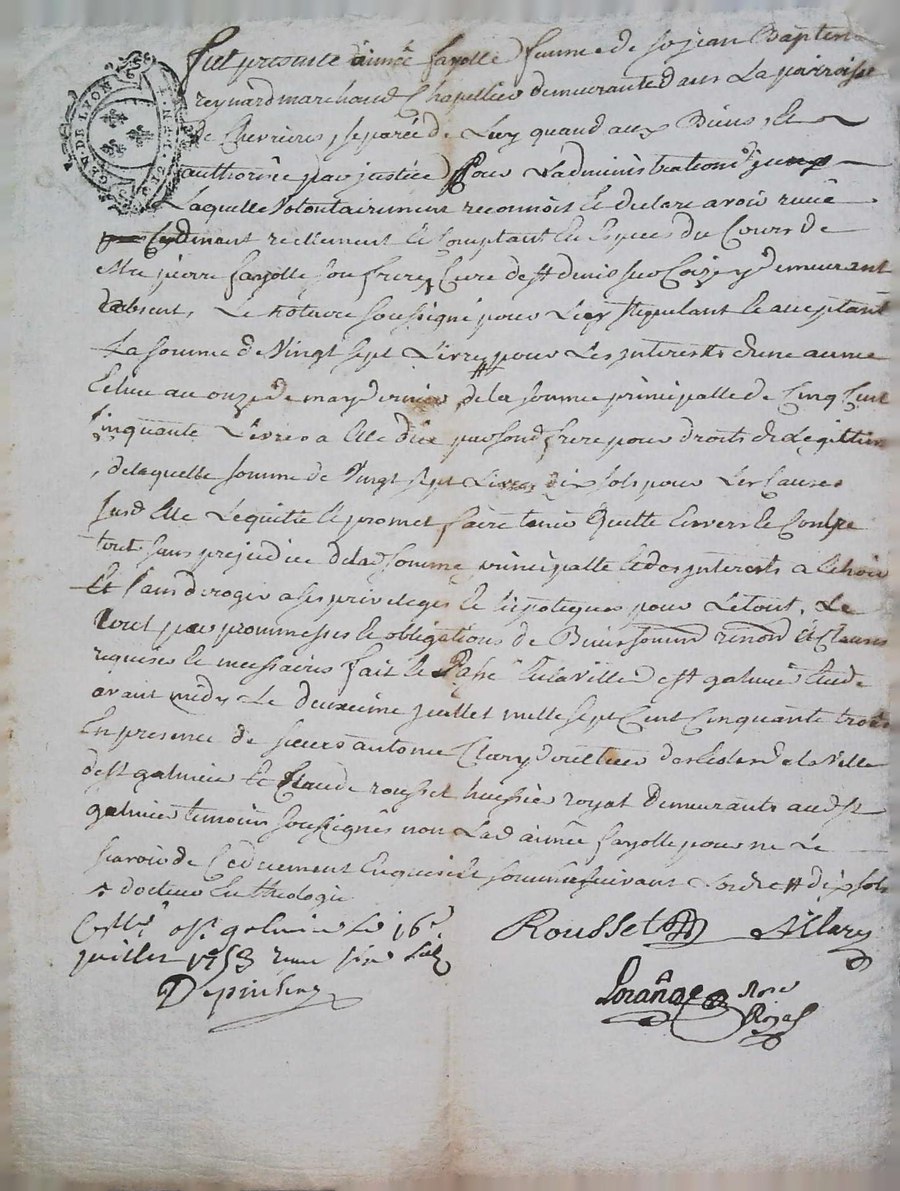 GEN. DE LYON
Fut presente aimée fayolle femme de sr jean Baptiste
reynard marchand Chapellier demeurante dans La parroisse
de Chevrieres, separée de Luy quand aux Biens, et
authorisée par justice pour Ladministration
Laquelle Volontairement reconnois et declare avoir receu
Cydevant reellement et Comptant en Espece du Cours de
Mre pierre fayolle son frere, Curé de st denis sur Coize y demeurant
absent, Le notaire soussigné pour Luy stipulant et acceptant
La somme de Vingt sept Livres pour Les jnterests dune année
Echue au onze de may dernier de la somme principalle de Cinq Cent
Cinquante Livres a Elle düe par son d frere pour droits de Legitime
, de laquelle somme de Vingt sept Livres dix sols pour Les Causes
susd Elle Lequitte et promet faire tenir quitte Envers et Contre
tous sans prejudice de lad somme principalle et des jnterests a Echoir
Et sans deroger a ses privileges et hipoteques pour Le tout, Le
tout par prommesses et obligations de Biens renon Et Clauses
requises et necessaires fait et Passé En la Ville de st galmier Etude
avant midy Le deuxieme juillet mille sept Cent Cinquante trois
En presence de sieurs antoine Clary de la Ville
de st galmier et Claude rousset huissier royal Demeurants aud st
galmier temoins soussignés non Lad aimée fayolle pour ne Le
scavoir de Ce Enquise et sommée suivant Lordre # dix sols
+ docteur En theologie
Contlé a st galmier Le 16e
juillet 1753 receu six sols
Depinseny
Rousset A Clary
Lorange Nore
Royal